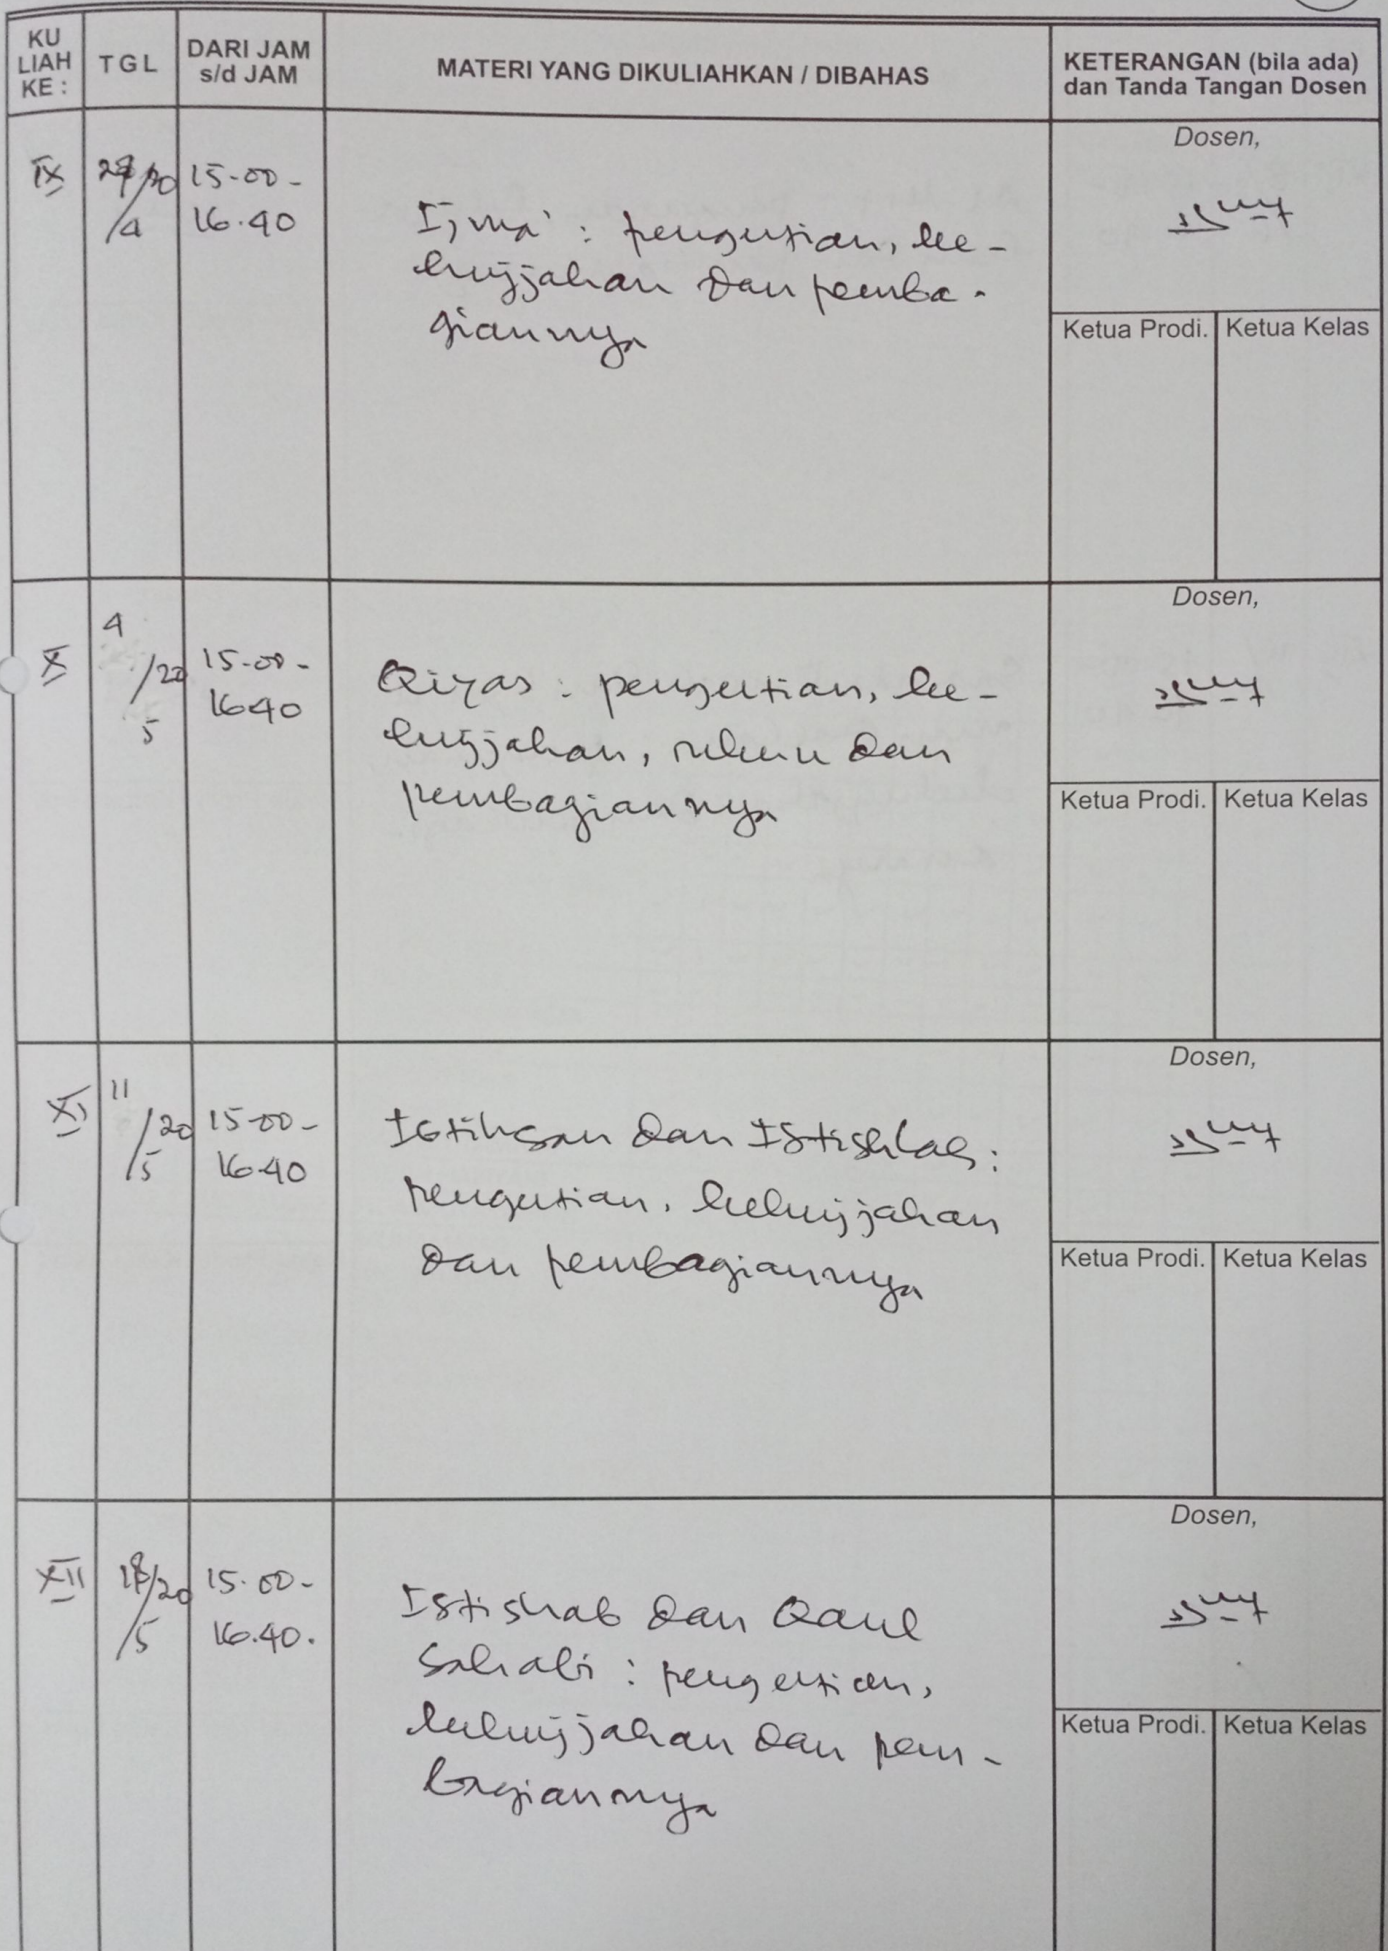 KU
LIAH
KE :
TGL
DARI JAM
s/d JAM
MATERI YANG DIKULIAHKAN / DIBAHAS
KETERANGAN (bila ada)
dan Tanda Tangan Dosen
IX
27/20
/4
15.00 -
16.40
Ijma' : pengertian, ke -
hujjahan dan pemba -
giannya
Dosen,
Ketua Prodi.
Ketua Kelas
X
4
/20
5
15.00 -
16.40
Qiyas : pengertian, ke -
hujjahan, rukun dan
pembagiannya
Dosen,
Ketua Prodi.
Ketua Kelas
XI
11
/20
/5
15.00 -
16.40
Istihsan dan Istishlah :
pengertian, kehujjahan
dan pembagiannya
Dosen,
Ketua Prodi.
Ketua Kelas
XII
18/20
/5
15.00 -
16.40.
Istishab dan Qaul
Sahabi : pengertian,
kehujjahan dan pem -
bagiannya
Dosen,
Ketua Prodi.
Ketua Kelas